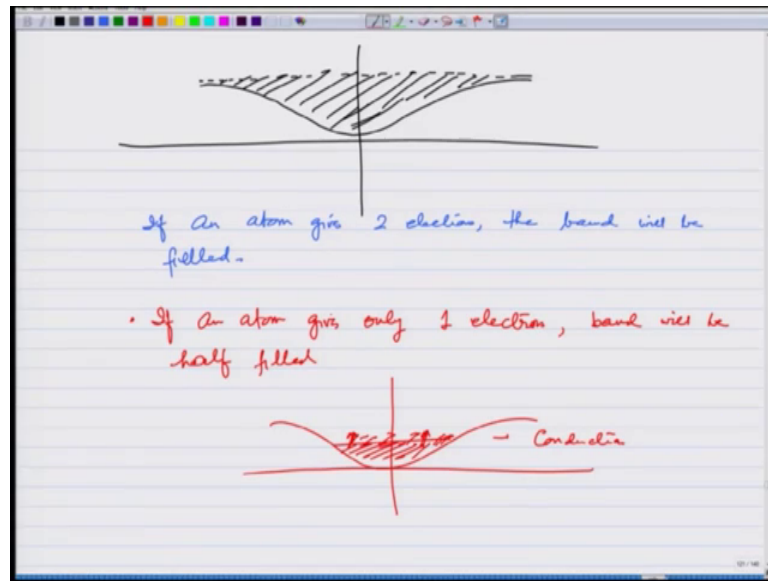 If an atom gives 2 electrons, the band will be
filled.
• If an atom gives only 1 electron, band will be
half filled
- Conduction